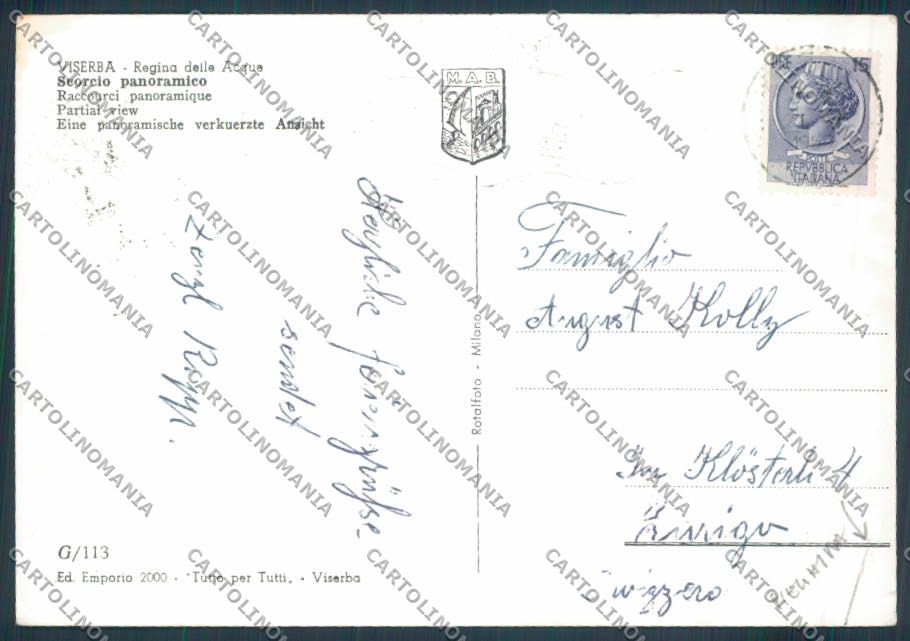 VISERBA - Regina delle Acque
Scorcio panoramico
Raccourci panoramique
Partial view
Eine panoramische verkuerzte Ansicht
M. A. B.
LIRE 15
POSTE
REPVBBLICA
ITALIANA
Herzliche Feriengrüsse
sendet
Famiglia
August Kolly
Im Klösterli 4
Zurigo
Svizzera
Rotalfoto - Milano
G/113
Ed. Emporio 2000 - "Tutto per Tutti" - Viserba
CARTOLINOMANIA